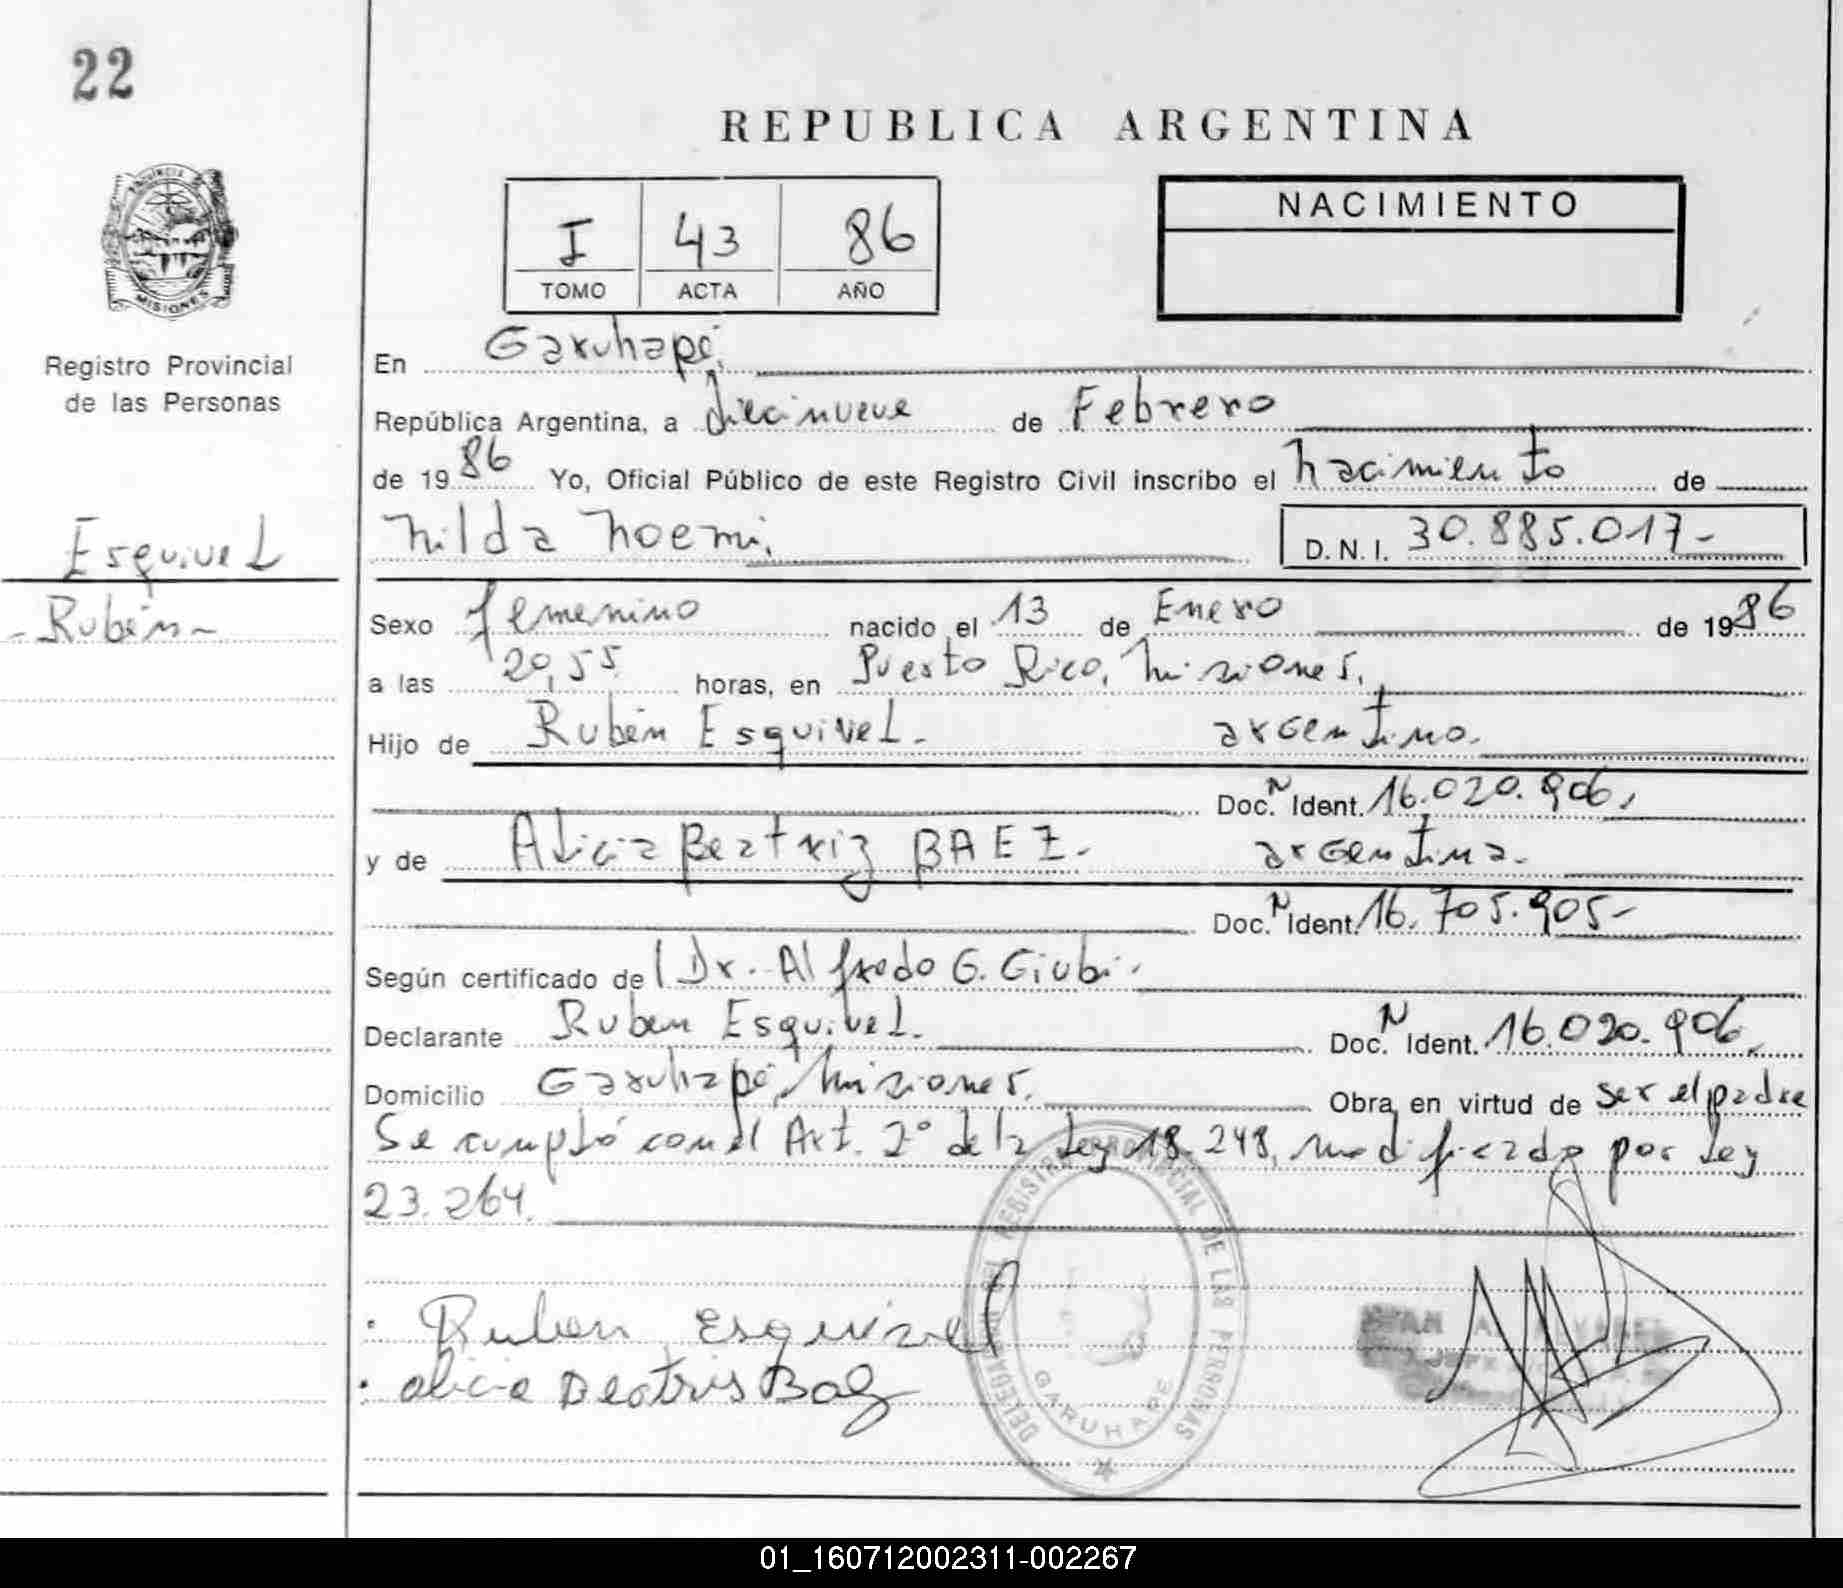 22
REPUBLICA ARGENTINA
PROVINCIA DE
MISIONES
I 43 86
TOMO ACTA AÑO
NACIMIENTO
Registro Provincial
de las Personas
En Garuhapé,
República Argentina, a diecinueve de Febrero
de 1986 Yo, Oficial Público de este Registro Civil inscribo el nacimiento de
Nilda Noemi, D.N.I. 30.885.017-
Esquivel
- Rubén -
Sexo femenino nacido el 13 de Enero de 1986
a las 20,55 horas, en Puerto Rico, Misiones,
Hijo de Rubén Esquivel. argentino.
Doc. N Ident. 16.020.906,
y de Alicia Beatriz BAEZ. argentina.
Doc. N Ident. 16.705.905-
Según certificado del Dr. Alfredo G. Giubi.
Declarante Ruben Esquivel. Doc. N Ident. 16.020.906,
Domicilio Garuhapé, Misiones. Obra en virtud de ser el padre
Se cumplió con el Art. 2° de la Ley 18.248, modificado por Ley
23.264.
Ruben Esquivel
alicia Beatris Baez
DELEGACION DEL REGISTRO PROVINCIAL DE LAS PERSONAS
GARUHAPE
01_160712002311-002267